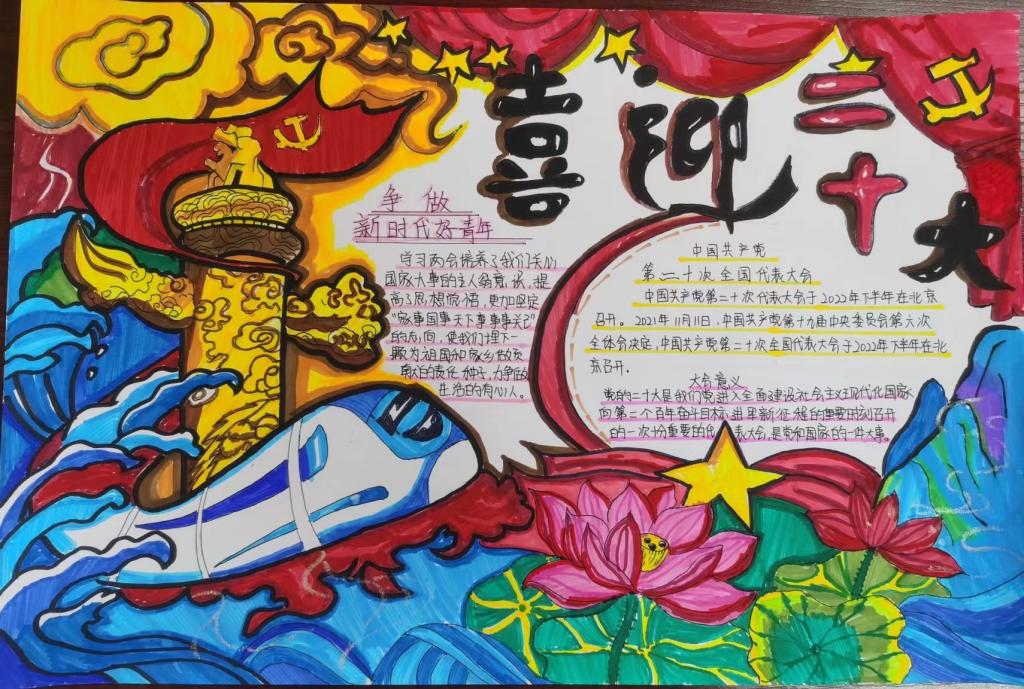 喜迎二十大
争做
新时代好青年
学习两会培养了我们关心
国家大事的主人翁意识,提
高了思想觉悟,更加坚定
“家事国事天下事事事关己”
的志向,使我们埋下一
颗为祖国和家乡故
的责任种子,力争做
生活的有心人。
中国共产党
第二十次全国代表大会
中国共产党第二十次代表大会于2022年下半年在北京
召开。2021年11月11日,中国共产党第十九届中央委员会第六次
全体会决定,中国共产党第二十次全国代表大会于2022年下半年在北
京召开。
大会意义
党的二十大是我们党进入全面建设社会主义现代化国家
向第二个百年奋斗目标进军新征程的重要时刻召开
的一次十分重要的代表大会,是党和国家的一件大事。